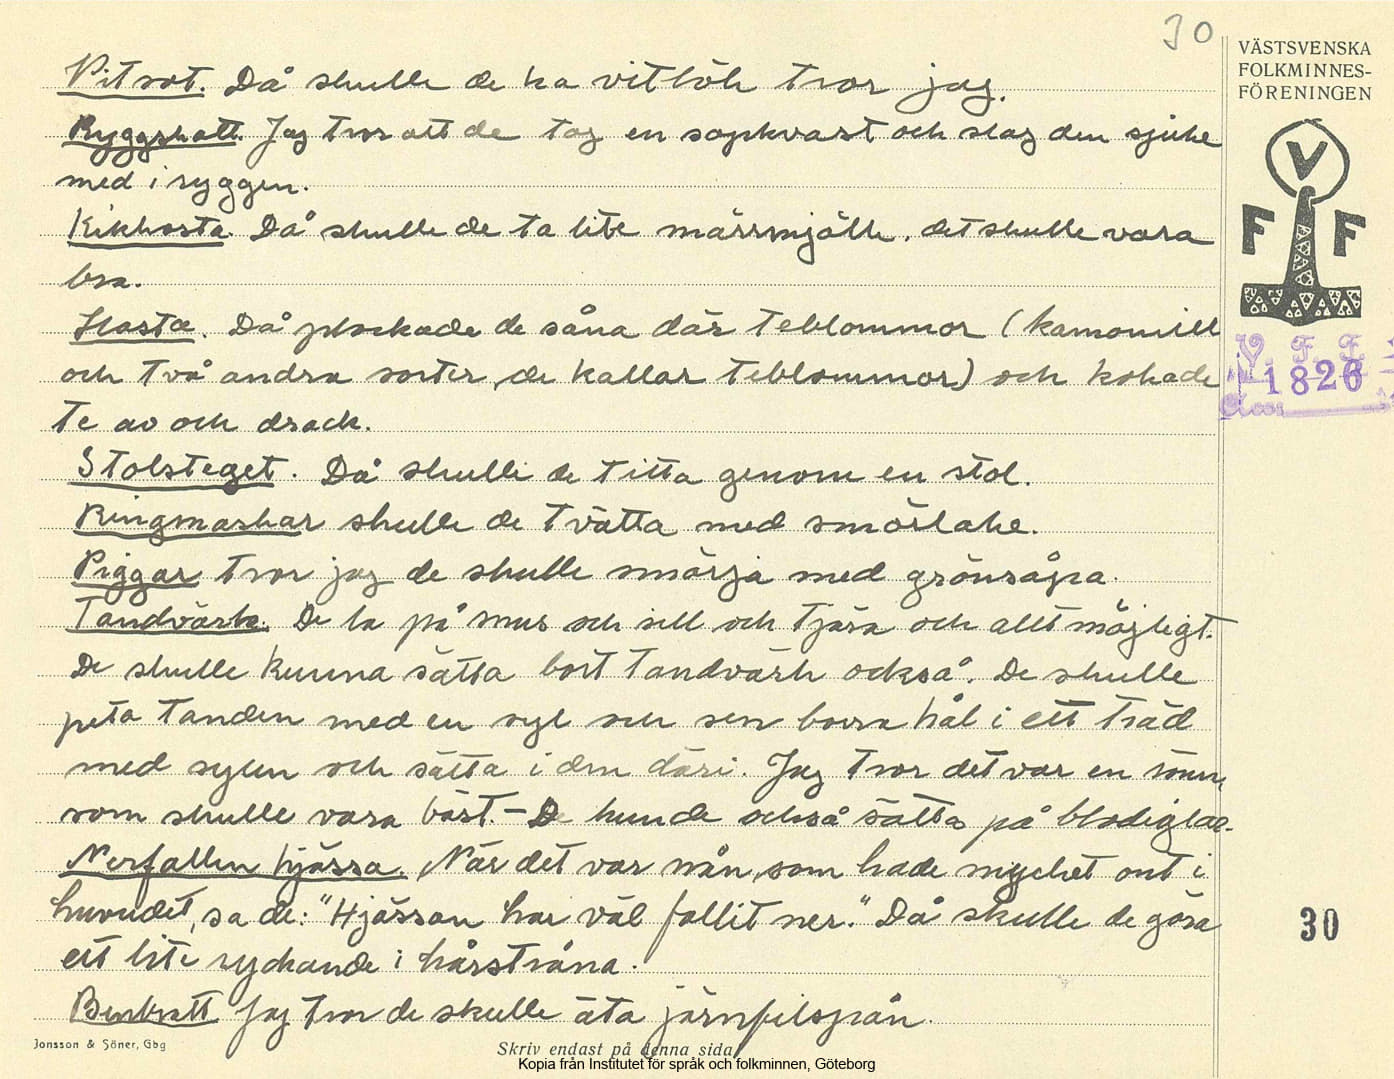 30
VÄSTSVENSKA
FOLKMINNES-
FÖRENINGEN
V
F F
V. F. F.
1826
Acc.
Vitsot. Då skulle de ha vitlök tror jag.
Ryggskott. Jag tror att de tog en sopkvast och slog den sjuke
med i ryggen.
Kikhosta. Då skulle de ta lite märrmjölk, det skulle vara
bra.
Hosta. Då plockade de såna där teblommor (kamomill
och två andra sorter, de kallar teblommor) och kokade
te av och drack.
Stolsteget. Då skulle de titta genom en stol.
Ringmaskar skulle de tvätta med smörlake.
Piggar tror jag de skulle smörja med grönsåpa.
Tandvärk. De la på snus och sill och tjära och allt möjligt.
De skulle kunna sätta bort tandvärk också. De skulle
peta tanden med en syl och sen borra hål i ett träd
med sylen och sätta i den däri. Jag tror det var en rönn,
som skulle vara bäst. – De kunde också sätta på blodiglar.
Nerfallen hjässa. När det var nån, som hade mycket ont i
huvudet, sa de: "Hjässan har väl fallit ner." Då skulle de göra
ett lite ryckande i hårstråna.
Benbrott Jag tror de skulle äta järnfilspån.
30
Jonsson & Söner, Gbg
Skriv endast på denna sida
Kopia från Institutet för språk och folkminnen, Göteborg